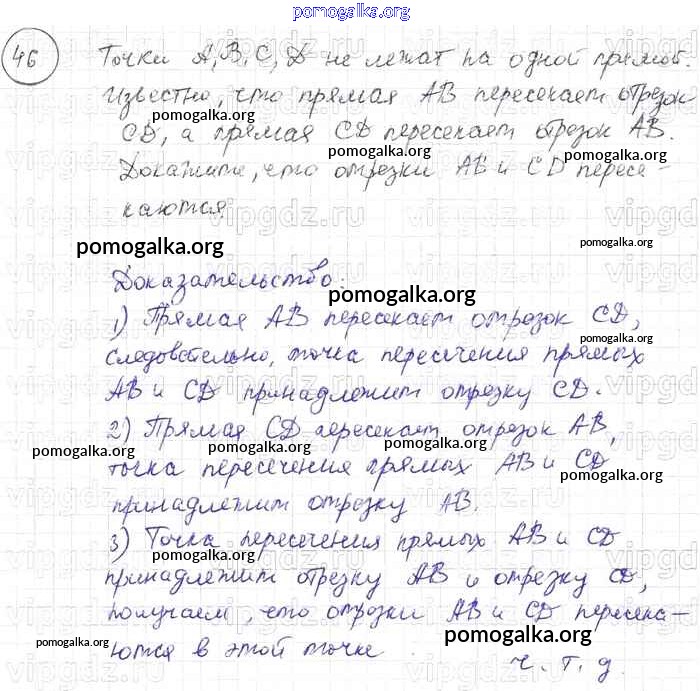 pomogalka.org
46 Точки A, B, C, D не лежат на одной прямой.
Известно, что прямая AB пересекает отрезок
CD, а прямая CD пересекает отрезок AB.
pomogalka.org
pomogalka.org
Докажите, что отрезки AB и CD пересе-
каются.
vipgdz.ru
pomogalka.org
pomogalka.org
Доказательство:
pomogalka.org
1) Прямая AB пересекает отрезок CD,
следовательно, точка пересечения прямых
pomogalka.org
AB и CD принадлежит отрезку CD.
2) Прямая CD пересекает отрезок AB,
pomogalka.org
pomogalka.org
точка пересечения прямых AB и CD
pomogalka.org
принадлежит отрезку AB.
3) Точка пересечения прямых AB и CD
pomogalka.org
принадлежит отрезку AB и отрезку CD,
получаем, что отрезки AB и CD пересека-
pomogalka.org
pomogalka.org
ются в этой точке.
ч. т. д.